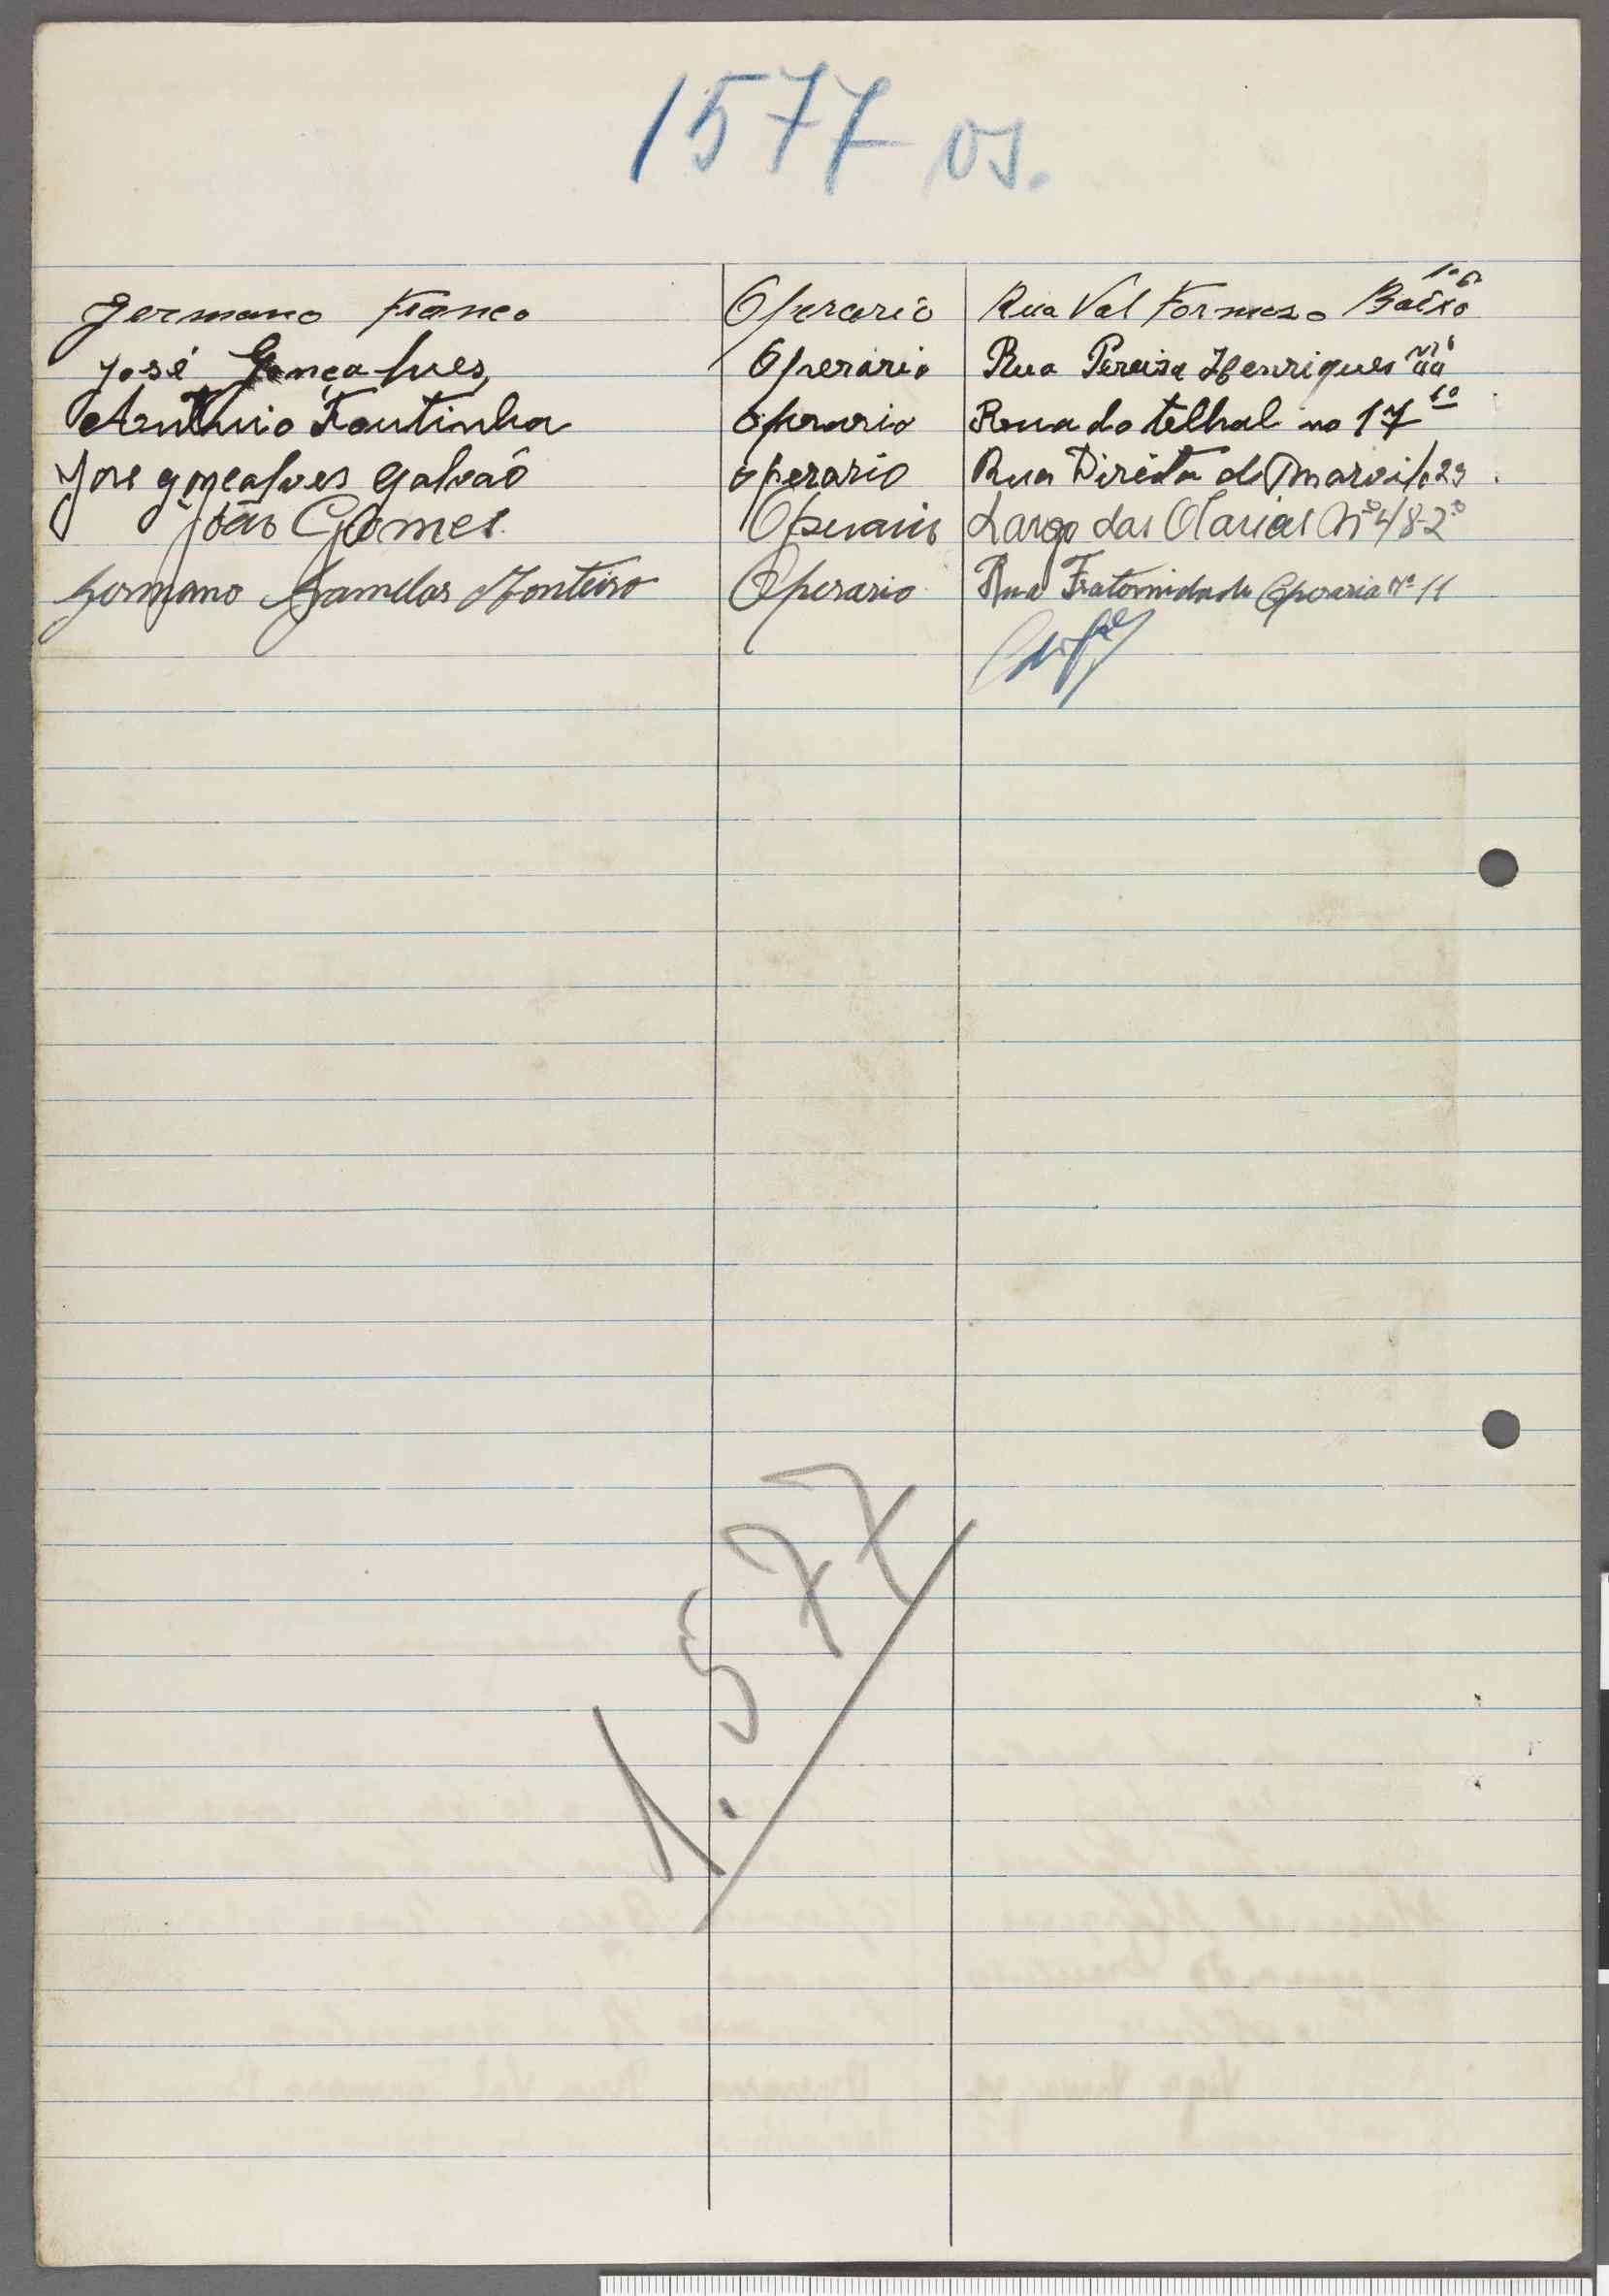 1577
Germano Franco Operario Rua Val Formoso Baixo
José Gonçalves Operario Rua Pereira Henriques
Fautinha operario Rua do telhal no 17 1º
Jose gonçalves galvaõ operario Rua Direita de Marvila 23
João Gomes Operario Largo das Olarias Nº 48-2º
Germano Gamelas Monteiro Operario Rua Fraternidade Operaria nº 11
1.577